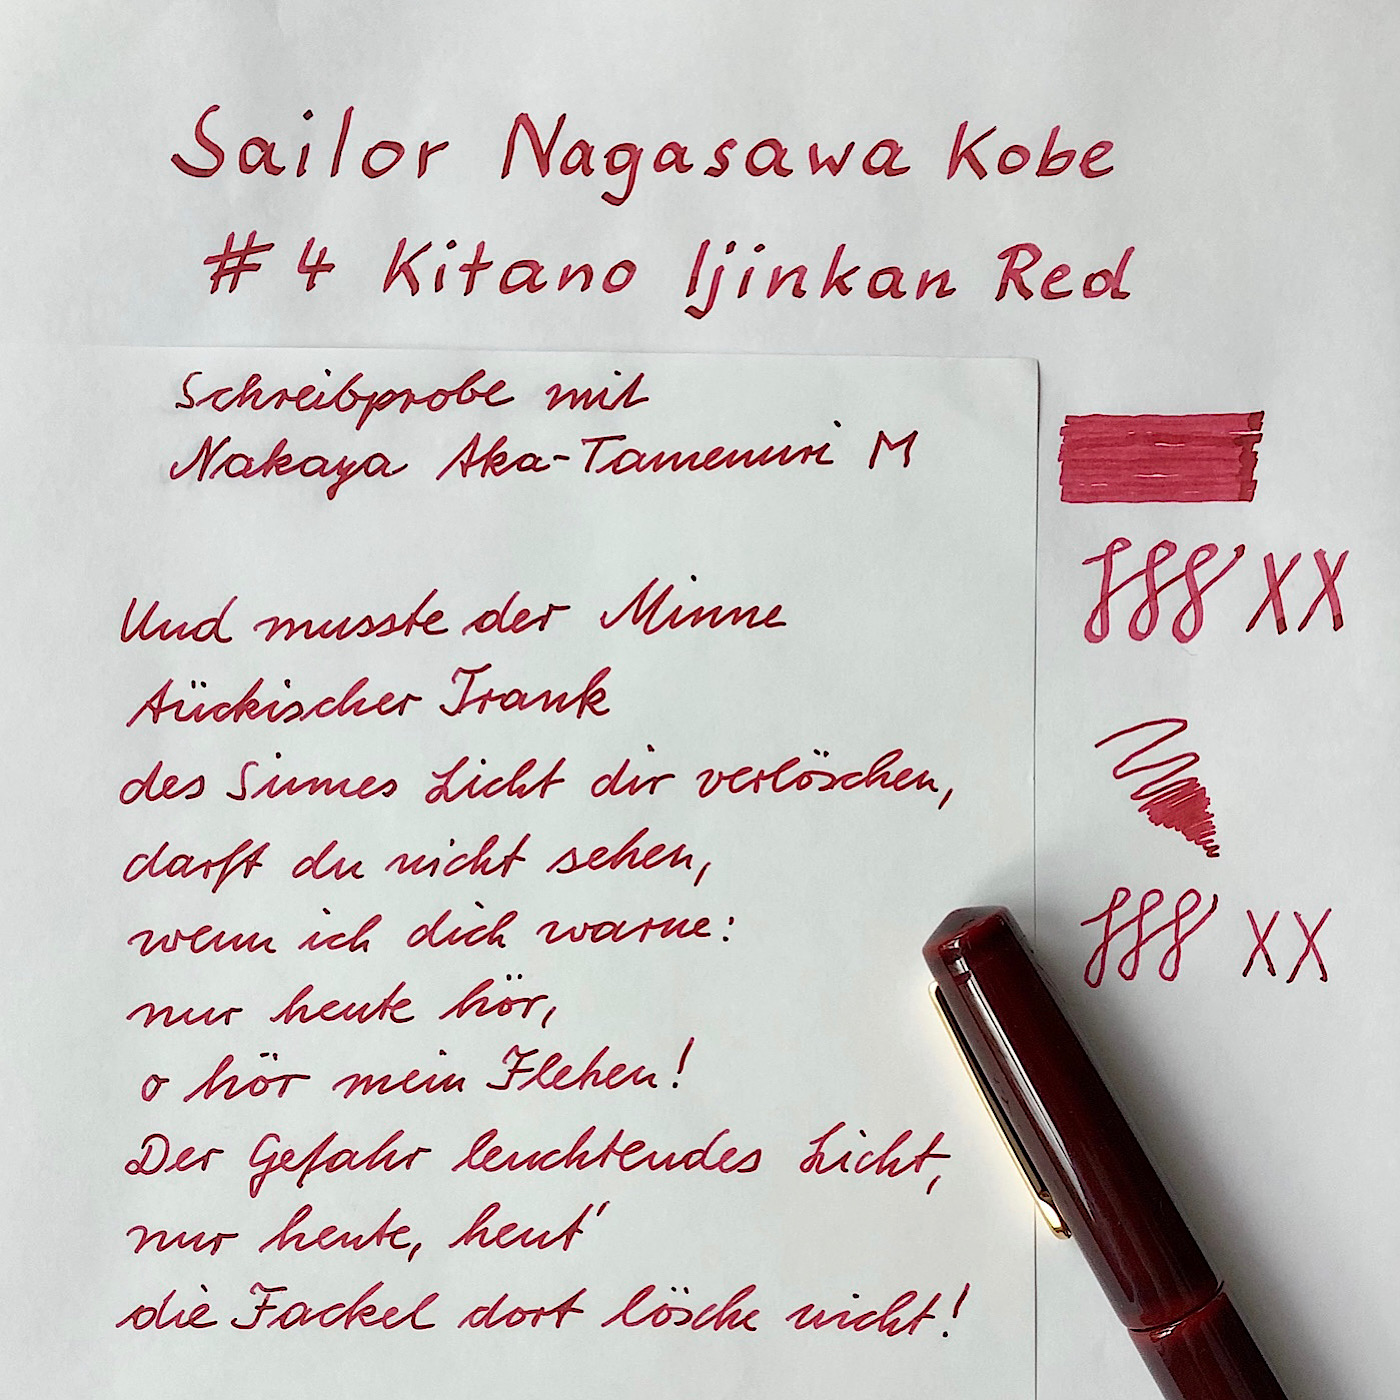 Sailor Nagasawa Kobe
#4 Kitano Ijinkan Red
Schreibprobe mit
Nakaya Aka-Tamenuri M
Und musste der Minne
tückischer Trank
des Sinnes Licht dir verlöschen,
darfst du nicht sehen,
wenn ich dich warne:
nur heute hör,
o hör mein Flehen!
Der Gefahr leuchtendes Licht,
nur heute, heut'
die Fackel dort lösche nicht!
XX
XX